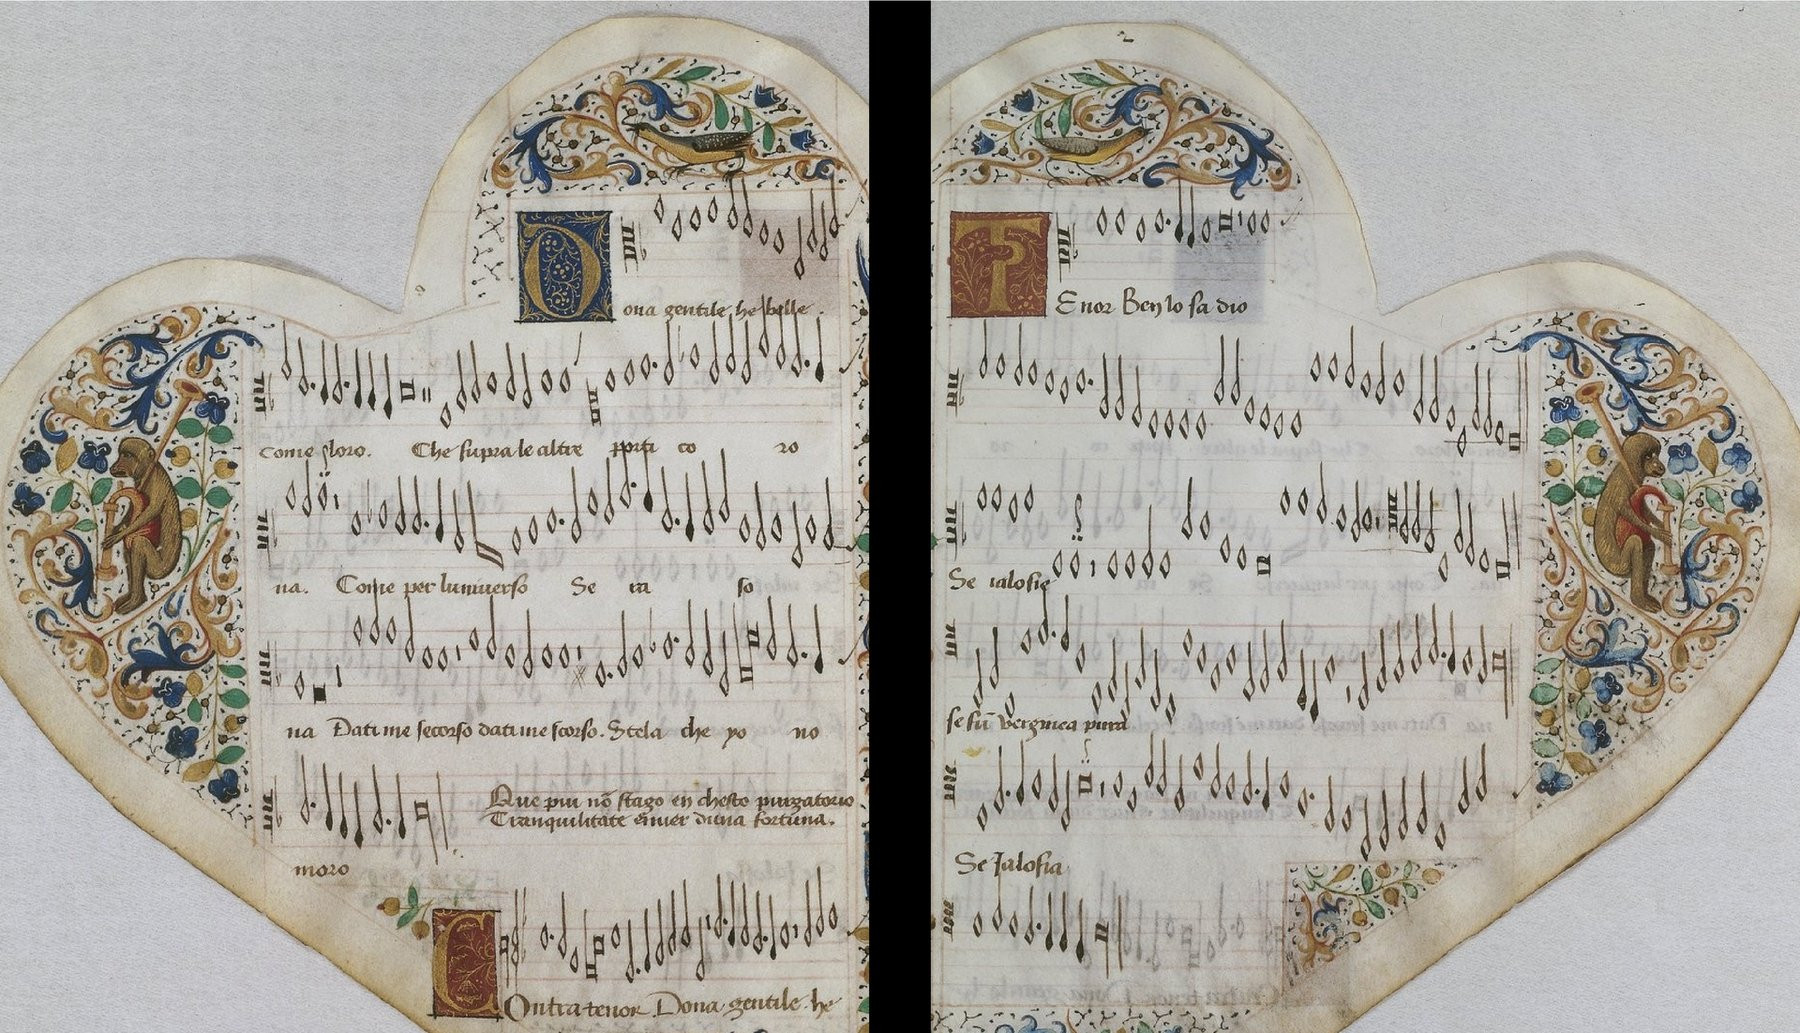 Dona gentile he belle
come loro. Che supra le altre porta co ro
na. Come per luniverso Se ra so
na Dati me secorso dati me scorso. Stela che yo no
Que piu nõ stago en chesto purgatorio
Tranquilitate duna fortuna.
moro
Contratenor Dona gentile he
2
TEnor Ben lo sa dio
Se ialosie
se sũ pura
Se Jalosia